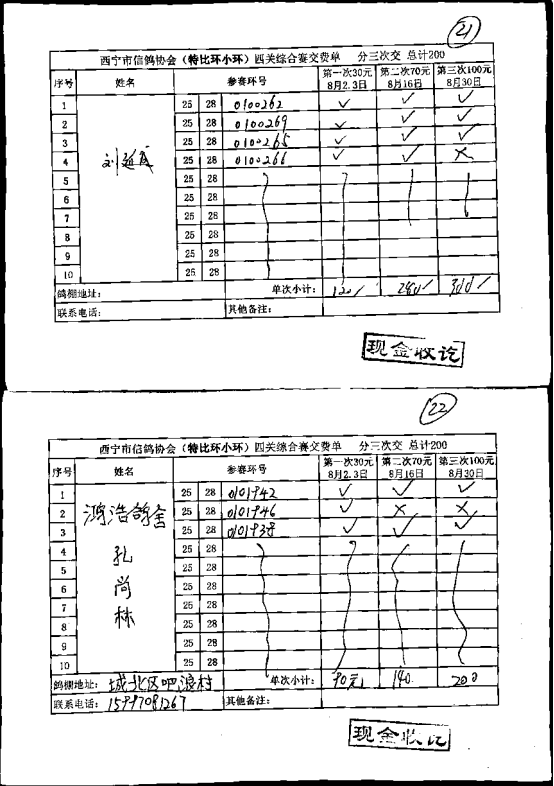 21
西宁市信鸽协会（特比环小环）四关综合赛交费单 分三次交 总计200
序号 姓名 参赛环号 第一次30元 8月2.3日 第二次70元 8月16日 第三次100元 8月30日
1 25 28 0100262 ✓ ✓ ✓
2 25 28 0100269 ✓ ✓ ✓
3 25 28 0100265 ✓ ✓ ✓
4 刘延成 25 28 0100266 ✓ ✓ ×
5 25 28
6 25 28
7 25 28
8 25 28
9 25 28
10 25 28
鸽棚地址： 单次小计： 120/ 280/ 300/
联系电话： 其他备注：
现金收讫
22
西宁市信鸽协会（特比环小环）四关综合赛交费单 分三次交 总计200
序号 姓名 参赛环号 第一次30元 8月2.3日 第二次70元 8月16日 第三次100元 8月30日
1 25 28 0101942 ✓ ✓ ✓
2 鸿浩鸽舍 25 28 0101946 ✓ × ×
3 25 28 0101938 ✓ ✓ ✓
4 孔 25 28
5 25 28
6 尚 25 28
7 25 28
8 林 25 28
9 25 28
10 25 28
鸽棚地址：城北区吧浪村 单次小计： 90元 140. 200
联系电话：15997081267 其他备注：
现金收讫